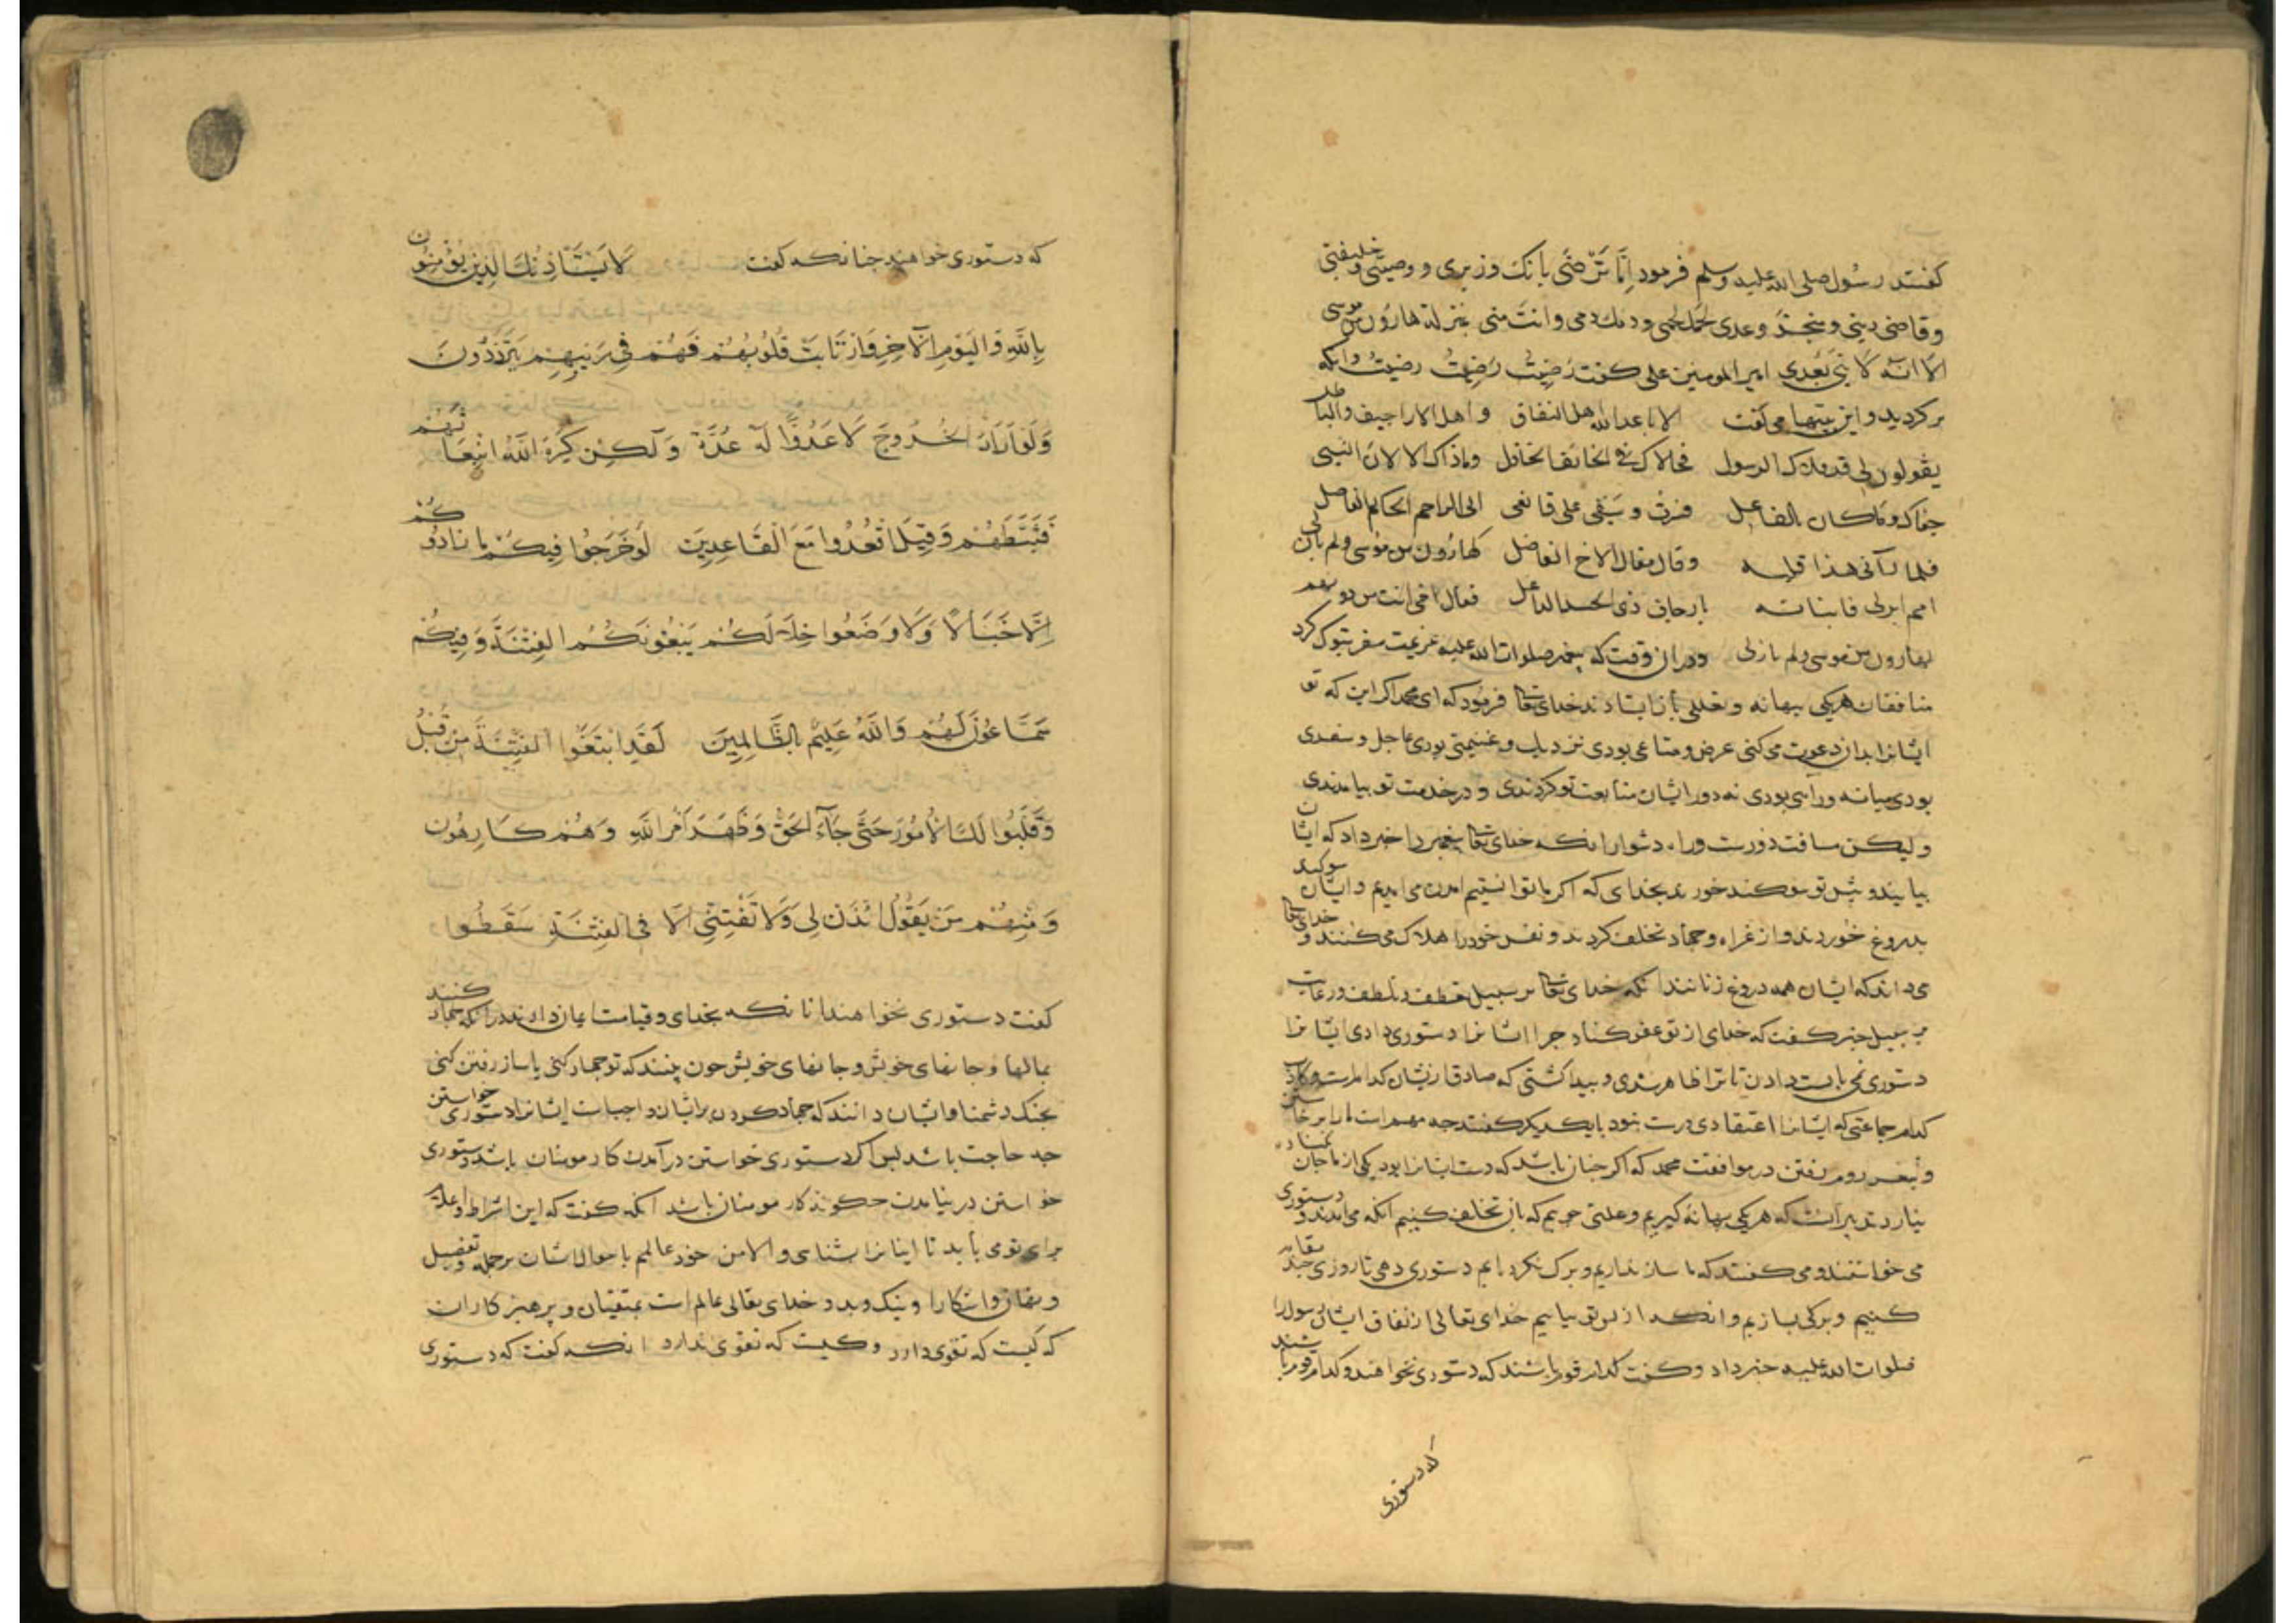 کفتند رسول صلی الله علیه وسلم فرمود اما ترضی بانک وزیری ووصیتی وخلیفتی
وقاضی دینی ومنجز وعدی لحمک لحمی ودمک دمی وانت منی بمنزلة هارون من موسی
الا انه لا نبی بعدی امیر المومنین علی کفت رضیت رضیت رضیت وانکه
برکردید واین بیتها می کفت الا باعد الله اهل النفاق واهل الاراجیف والباطل
یقولون لی قد قلاک الرسول فخلاک فی الخالف الخاذل وما ذاک الا لان النبی
جفاک وما کان بالفاعل فسرت وسیفی علی عاتقی الی الراحم الحاکم الفاصل
فلما رآنی هفا قلبه وقال مقال الاخ
بارجاف ذی الحسد فقال اخی انت من دونهم
کهارون من موسی ولم یازلی ودر ان وقت که پیغمبر صلوات الله علیه عزیمت سفر تبوک کرد
منافقان هر یکی ببهانه وتعللی باز ایستادند خدای تعالی فرمود که ای محمد اکر این که تو
ایشانرا بدان دعوت می کنی عرض ومتاعی بودی نزدیک وغنیمتی بودی عاجل وسفری
بودی میانه وراهی بودی نه دور ایشان متابعت تو کردندی ودر خدمت تو بیامدندی
ولیکن مسافت دورست وراه دشوار انکه خدای تعالی پیغمبر را خبر داد که ایشان
بیایند وپیش تو سوکند خورند بخدای که اکر ما توانستیم امدن می امدیم وایشان سوکند
بدروغ خوردند واز غزاه وجهاد تخلف کردند ونفس خود را هلاک می کنند وخدای تعالی
می داند که ایشان همه دروغ زنانند انکه خدای تعالی بر سبیل تعطف وتلطف
بر سبیل خبر کفت که خدای از تو عفو کناد چرا ایشانرا دستوری دادی ایشانرا
دستوری نمی بایست دادن تا ترا ظاهر شدی وپیدا کشتی که صادقان ایشان کدامست وکاذب
کدام جماعتی که ایشانرا اعتقادی درست نبود با یکدیکر کفتند چه مهم است ما را برخاستن
وبغزو روم رفتن در موافقت محمد که اکر چنان باشد که دست ایشانرا بود یکی از ما جان
نبارد تدبیر انست که هر یکی بهانه کیریم وعلتی جوییم که بازان تخلف کنیم انکه می امدند ودستوری
می خواستند ومی کفتند که ما ساز نداریم وبرک نکرده ایم دستوری دهی تا روزی چند مقام
کنیم وبرکی بسازیم وانکه از پس تو بیاییم خدای تعالی از نفاق ایشان رسول را
صلوات الله علیه خبر داد وکفت کدام قوم باشند که دستوری نخواهند وکدام قوم باشند
که دستوری
که دستوری خواهند چنانکه کفت لا یستاذنک الذین یؤمنون
بالله والیوم الآخر وارتابت قلوبهم فهم فی ریبهم یترددون
ولو ارادوا الخروج لاعدوا له عدة ولکن کره الله انبعاثهم
فثبطهم وقیل اقعدوا مع القاعدین لو خرجوا فیکم ما زادوکم
الا خبالا ولاوضعوا خلالکم یبغونکم الفتنة وفیکم
سماعون لهم والله علیم بالظالمین لقد ابتغوا الفتنة من قبل
وقلبوا لک الامور حتی جآء الحق وظهر امر الله وهم کارهون
ومنهم من یقول ائذن لی ولا تفتنی الا فی الفتنة سقطوا
کفت دستوری نخواهند انانکه بخدای وقیامت ایمان دارند در انکه جهاد کنند
بمالها وجانهای خویش وجانهای خویش چون بینند که تو جهاد کنی یا ساز رفتن کنی
بجنک دشمنا وایشان دانند که جهاد کردن بر ایشان واجبست ایشانرا دستوری خواستن
چه حاجت باشد پس اکر دستوری خواستن در آمدن کار مومنان باشد دستوری
خواستن در نیامدن چکونه کار مومنان باشد انکه کفت که این اشراط واعلام
برای تو می باید تا اینانرا شناسی والا من خود عالمم باحوال ایشان بر جمله وتفصیل
ونهان واشکارا ونیک وبد وخدای تعالی عالم است بمتقیان وپرهیزکاران
که کیست که تقوی دارد وکیست که تقوی ندارد انکه کفت که دستوری